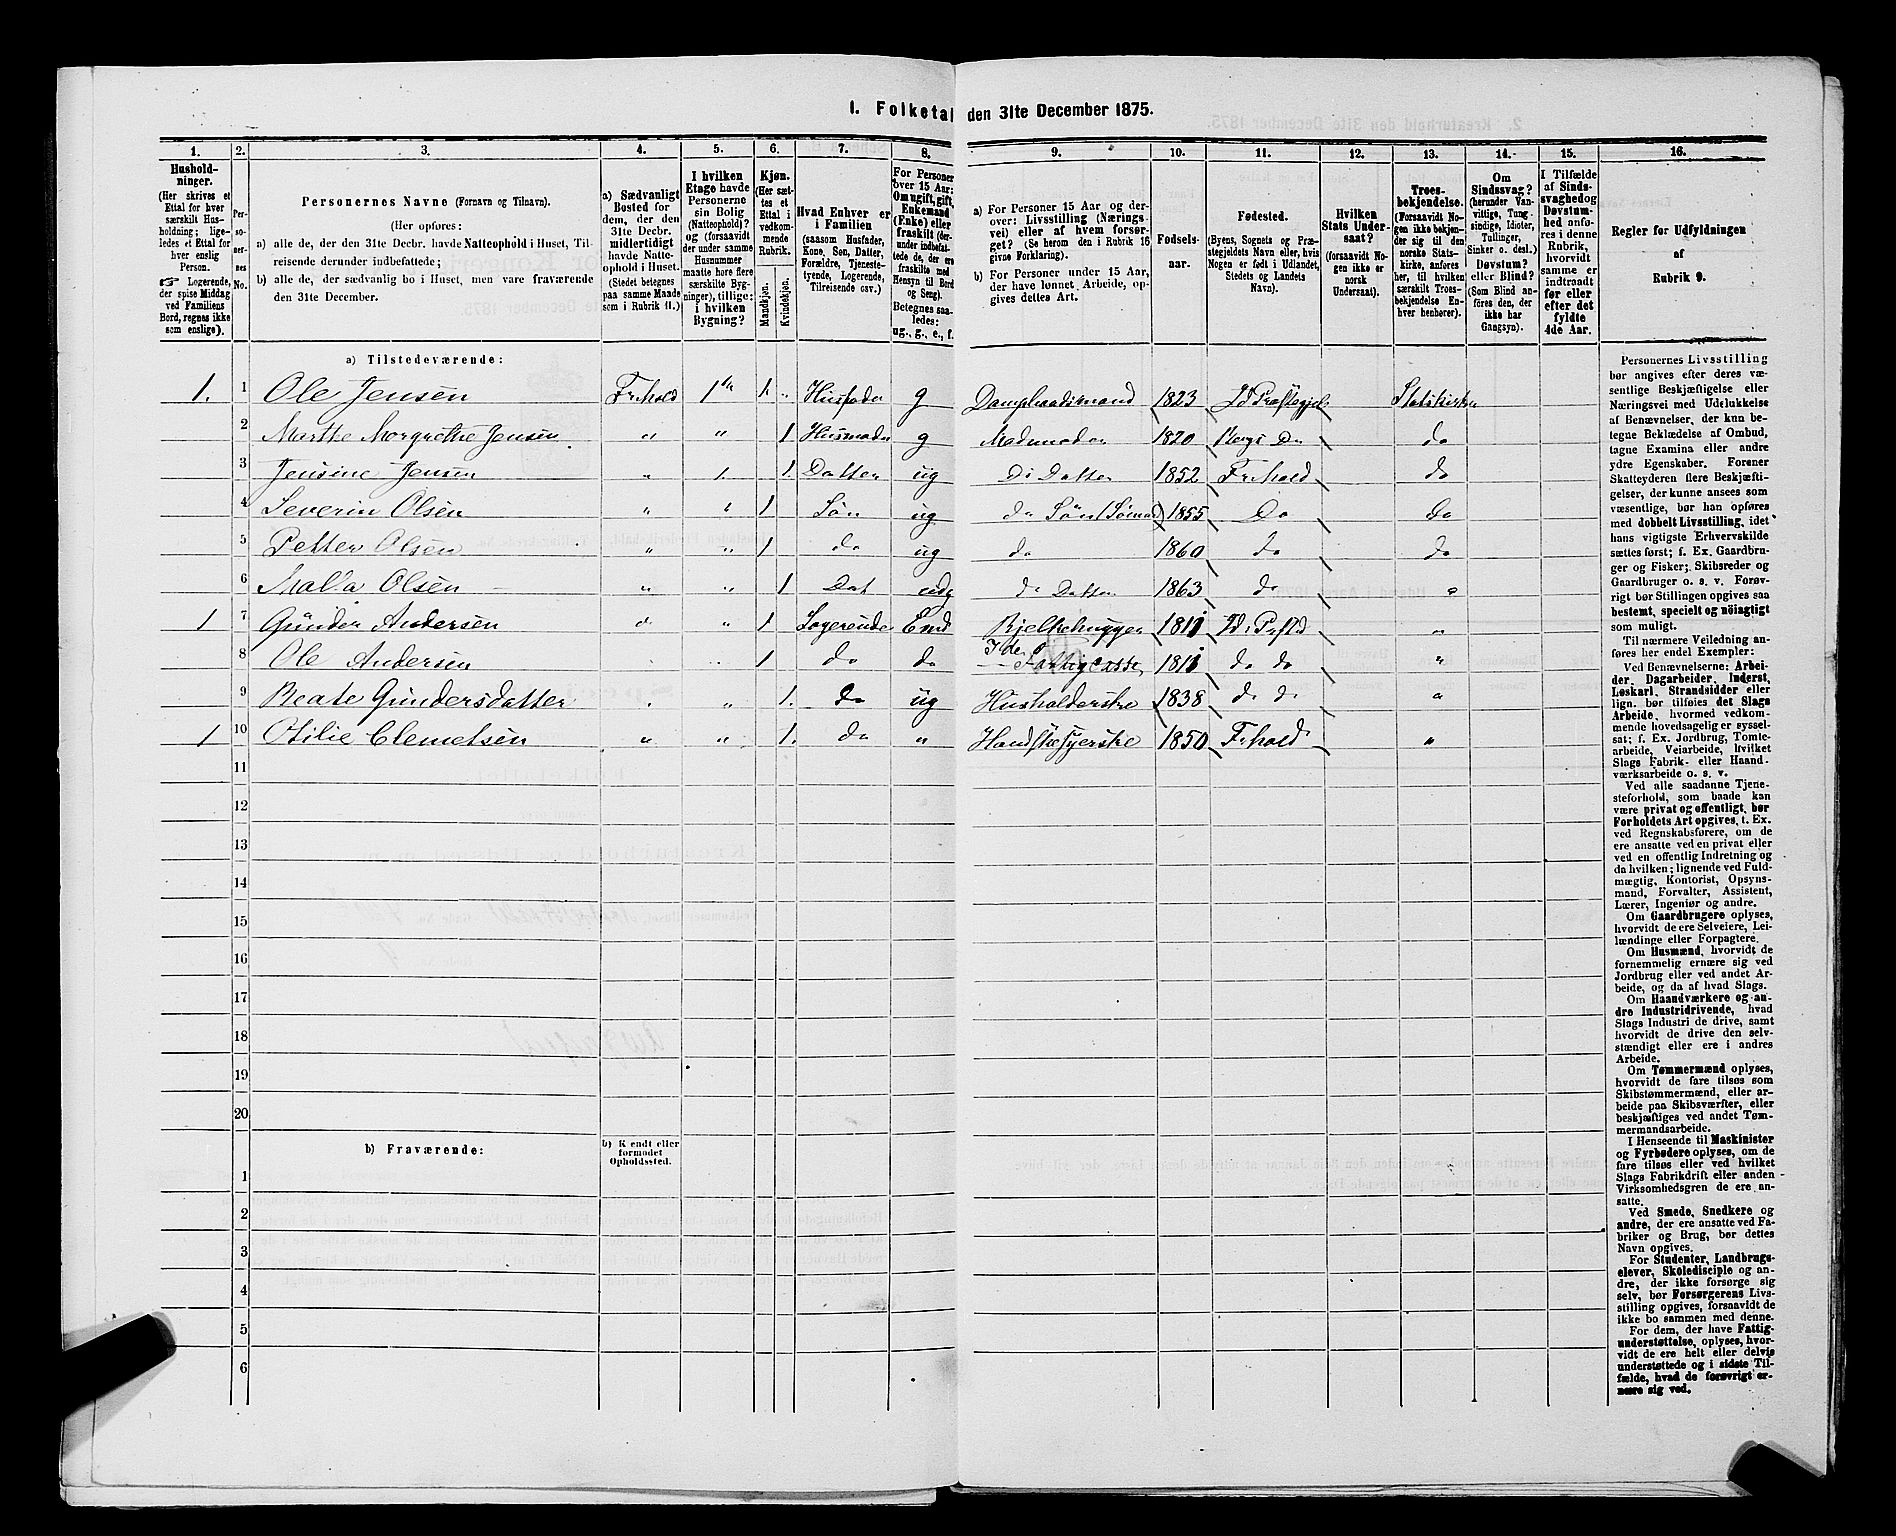 1. Folketal den 31te December 1875.
1. 2. 3. 4. 5. 6. 7. 8. 9. 10. 11. 12. 13. 14. 15. 16.
Hushold-
ninger.
(Her skrives et
Ettal for hver
særskilt Hus-
holdning; lige-
ledes et Ettal for
hver enslig
Person.
☞ Logerende,
der spise Middag
ved Familiens
Bord, regnes ikke
som enslige).
Per-
so-
ner-
nes
No.
Personernes Navne (Fornavn og Tilnavn).
(Her opføres:
a) alle de, der den 31te Decbr. havde Natteophold i Huset, Til-
reisende derunder indbefattede;
b) alle de, der sædvanlig bo i Huset, men vare fraværende
den 31te December.
a) Sædvanligt
Bosted for
dem, der den
31te Decbr.
midlertidigt
havde Natte-
ophold i Huset.
(Stedet betegnes
paa samme Maade
som i Rubrik 11.)
I hvilken
Etage havde
Personerne
sin Bolig
(Natteophold)?
og (forsaavidt
der under samme
Husnummer
maatte høre flere
særskilte Byg-
ninger), tillige:
i hvilken
Bygning?
Kjøn.
(Her sæt-
tes et
Ettal i
vedkom-
mende
Rubrik.
Mandkjøn.
Kvindekjøn.
Hvad Enhver er
i Familien
(saasom Husfader,
Kone, Søn, Datter,
Forældre, Tjeneste-
tyende, Logerende,
Tilreisende osv.)
For Personer
over 15 Aar:
Om ugift, gift,
Enkemand
(Enke) eller
fraskilt (der-
under indbefat-
tede de, der ere
fraskilte med
Hensyn til Bord
og Seng).
Betegnes saa-
ledes:
ug., g., e., f.
a) For Personer 15 Aar og der-
over: Livsstilling (Nærings-
vei) eller af hvem forsør-
get? (Se herom den i Rubrik 16
givne Forklaring).
b) For Personer under 15 Aar,
der have lønnet Arbeide, op-
gives dettes Art.
Fødsels-
aar.
Fødested.
(Byens, Sognets og Præ-
stegjeldets Navn eller, hvis
Nogen er født i Udlandet,
Stedets og Landets
Navn).
Hvilken
Stats Under-
saat?
(forsaavidt No-
gen ikke er
norsk
Undersaat).
Troes-
bekjendelse.
(Forsaavidt No-
gen ikke bekjen-
der sig til den
norske Stats-
kirke, anføres
her, til hvilken
særskilt Troes-
bekjendelse En-
hver henhører).
Om
Sindssvag?
(herunder Van-
vittige, Tung-
sindige, Idioter,
Tullinger,
Sinker o. desl.)
Døvstum?
eller Blind?
(Som Blind an-
føres den, der
ikke har
Gangsyn).
I Tilfælde
af Sinds-
svaghed og
Døvstum-
hed anfø-
res i denne
Rubrik,
hvorvidt
samme er
indtraadt
før eller
efter det
fyldte
4de Aar.
Regler for Udfyldningen
af
Rubrik 9.
a) Tilstedeværende:
1. 1 Ole Jensen Frhold 1ste 1. " Husfader g 1823 Id Præstegjeld Statskirken
2 Marthe Margrethe Jensen " " 1 Husmoder g Madmoder 1820 Bergs Do do
3 Jensine Jensen " 1. 1. Datter ug Do Datter 1852 Frhold do
4 Severin Olsen " " 1 Søn ug do Søn (Sømand) 1855 Do Do
5 Petter Olsen " " 1 do ug do 1860 do do
6 Malla Olsen " " 1 Dat do Datter 1863 do "
1 7 Günder Andersen " " 1 Logerende Bjelkehugger 1811 Id Prstgd "
8 Ole Andersen 1 do do Fattigcasse 1811 do do "
9 Beate Gündersdatter " " 1. do ug Husholderske 1838 do do "
1 10 Otilie Clemetsen " " 1. do " 1850 Frhold "
11
12
13
14
15
16
17
18
19
20
b) Fraværende:
b) Kjendt eller
formodet
Opholdssted.
1
2
3
4
5
6
Personernes Livsstilling
bør angives efter deres væ-
sentlige Beskjæftigelse eller
Næringsvei med Udelukkelse
af Benævnelser, der kun be-
tegne Beklædelse af Ombud,
tagne Examina eller andre
ydre Egenskaber. Forener
Skatteyderen flere Beskjæfti-
gelser, der kunne ansees som
væsentlige, bør han opføres
med dobbelt Livsstilling, idet
hans vigtigste Erhvervskilde
sættes først; f. Ex. Gaardbru-
ger og Fisker; Skibsreder og
Gaardbruger o. s. v. Forøv-
rigt bør Stillingen opgives saa
bestemt, specielt og nöiagtigt
som muligt.
Til nærmere Veiledning an-
føres her endel Exempler:
Ved Benævnelserne: Arbei-
der, Dagarbeider, Inderst,
Løskarl, Strandsidder eller
lign. bør tilføies det Slags
Arbeide, hvormed vedkom-
mende hovedsagelig er syssel-
sat; f. Ex. Jordbrug, Tomte-
arbeide, Veiarbeide, hvilket
Slags Fabrik- eller Haand-
værksarbeide o. s. v.
Ved alle saadanne Tjene-
steforhold, som baade kan
være privat og offentligt, bør
Forholdets Art opgives, t. Ex.
ved Regnskabsførere, om de
ere ansatte ved en privat eller
ved en offentlig Indretning og
da hvilken; lignende ved Fuld-
mægtig, Kontorist, Opsyns-
mand, Forvalter, Assistent,
Lærer, Ingeniør og andre.
Om Gaardbrugere oplyses,
hvorvidt de ere Selveiere, Lei-
lændinge eller Forpagtere.
Om Husmænd, hvorvidt de
fornemmelig ernære sig ved
Jordbrug eller ved andet Ar-
beide, og da af hvad Slags.
Om Haandværkere og an-
dre Industridrivende, hvad
Slags Industri de drive, samt
hvorvidt de drive den selv-
stændigt eller ere i andres
Arbeide.
Om Tømmermænd oplyses,
hvorvidt de fare tilsøs som
Skibstømmermænd, eller ar-
beide paa Skibsværfter, eller
beskjæftiges ved andet Tøm-
mermandsarbeide.
I Henseende til Maskinister
og Fyrbødere oplyses, om de
fare tilsøs eller ved hvilket
Slags Fabrikdrift eller anden
Virksomhedsgren de ere an-
satte.
Ved Smede, Snedkere og
andre, der ere ansatte ved Fa-
briker og Brug, bør dettes
Navn opgives.
For Studenter, Landbrugs-
elever, Skoledisciple og an-
dre, der ikke forsørge sig
selv, bør Forsørgerens Livs-
stilling opgives, forsaavidt de
ikke bo sammen med denne.
For dem, der have Fattig-
understøttelse, oplyses, hvor-
vidt de ere helt eller delvis
understøttede og i sidste Til-
fælde, hvad de forøvrigt er-
nære sig ved.